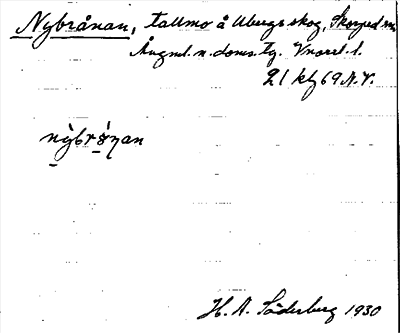 Nybrånan, tallmo å Ubergs skog, Skorped sn,
Ångml. n. doms. tg. Vnorrl. l.
21 kf 69 N.V.
nỳbrånan
H. A. Söderberg 1930